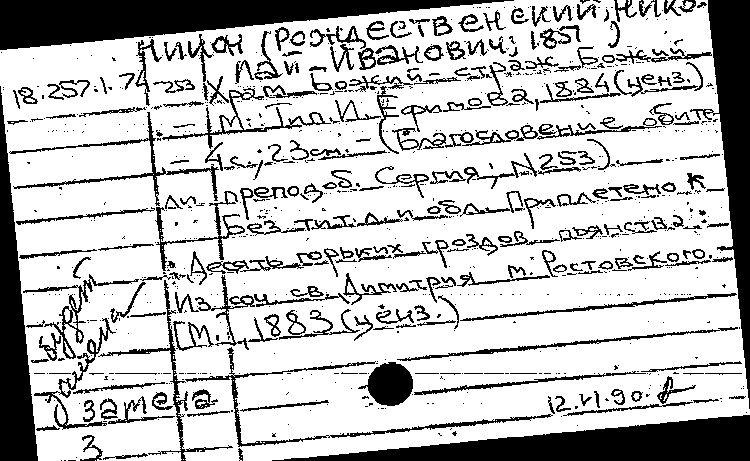 Никон (Рождественский, Нико-
лай Иванович; 1851 )
18.257.1.74-253 Храм Божий - страж Божий
- М.: Тип. И. Ефимова, 1884 (ценз.)
- 4 с.; 23 см. - (Благословение обите
ли преподоб. Сергия; N253).
Без тит. л. и обл. Приплетено к
: Десять горьких гроздов пьянства:
Из соч. св. Димитрия м. Ростовского.
[М.], 1883 (ценз.)
будет
замена
замена
3
12.VI.90.